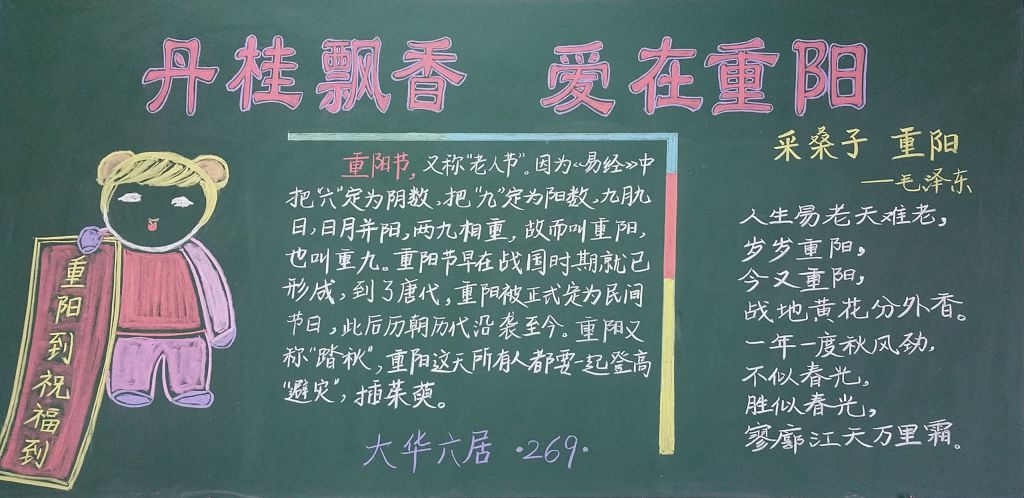 丹桂飘香 爱在重阳
重阳到祝福到
重阳节,又称“老人节”。因为《易经》中
把“六”定为阴数,把“九”定为阳数,九月九
日,日月并阳,两九相重,故而叫重阳,
也叫重九。重阳节早在战国时期就已
形成,到了唐代,重阳被正式定为民间
节日,此后历朝历代沿袭至今。重阳又
称“踏秋”,重阳这天所有人都要一起登高
“避灾”,插茱萸。
大华六居·269·
采桑子 重阳
——毛泽东
人生易老天难老,
岁岁重阳,
今又重阳,
战地黄花分外香。
一年一度秋风劲,
不似春光,
胜似春光,
寥廓江天万里霜。